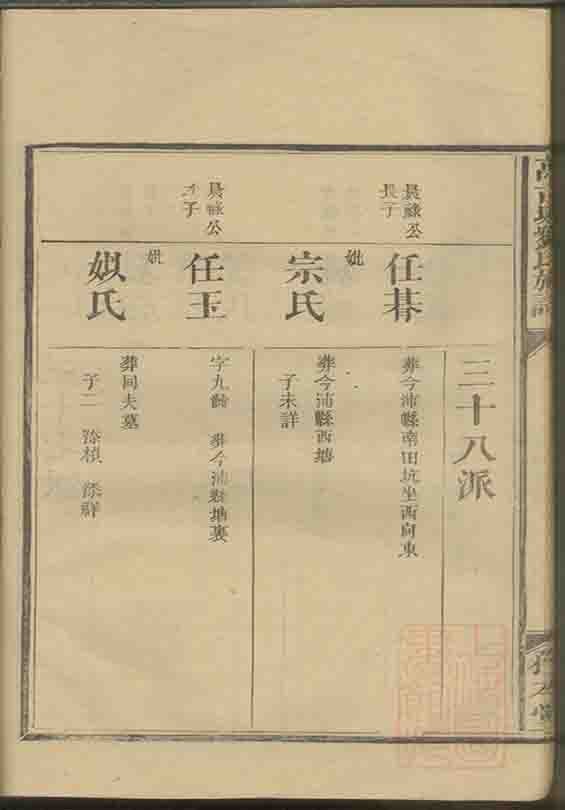 三十八派
長祿公
長子
任朞
葬今沛縣南田坑坐西向東
妣
宗氏
葬今沛縣西塘
子未詳
長祿公
次子
任玉
字九齡 葬今沛縣塘裏
妣
姒氏
葬同夫墓
子二